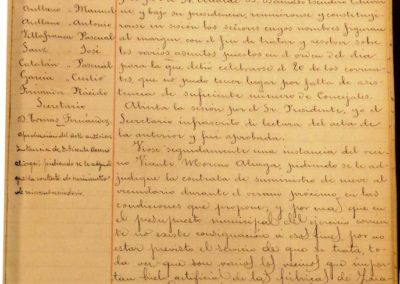 Arellano - Manuel
Arellano - Antonio
Villafranca Pascual
Sanz José
Catalán - Pascual
García - Emilio
Fernando Plácido
Secretario
D. Tomas Fernández
aprobación del acta anterior
Instancia de D. Vicente Moreno
Aliaga, pidiendo se le adjudi
que la contrata de suministro
de nieve
y bajo su presidencia, reunieronse y constituye
ronse en sesion los señores cuyos nombres figuran
al margen con el fin de tratar y resolver sobre
los varios asuntos puestos en el orden del dia
para la que debió celebrarse el 20 de los corrien
tes, que no pudo tener lugar por falta de asis
tencia de suficiente número de Concejales.
Abierta la sesion por el Sr. Presidente, yo el
Secretario infrascrito di lectura del acta de
la anterior y fué aprobada.
Viose seguidamente una instancia del veci
no Vicente Moreno Aliaga, pidiendo se le ad
judique la contrata de suministro de nieve al
vecindario durante el verano próximo, en las
condiciones que propone, y por mas que en
el presupuesto municipal del ejercicio corrien
te no existe consignación á esos fines por no
estar previsto el servicio de que se trata, toda
vez que son varios los vecinos que impor
tan hielo artificial de las fábricas de Zara